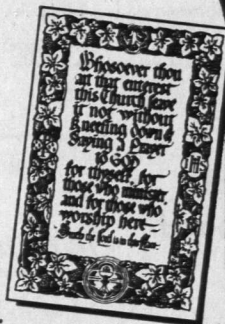 Whosoever thou
art that enterest
this Church leave
it not without
kneeling down &
Saying a Prayer
to GOD
for thyself, for
those who minister,
and for those who
worship here
Surely the Lord is in this Place